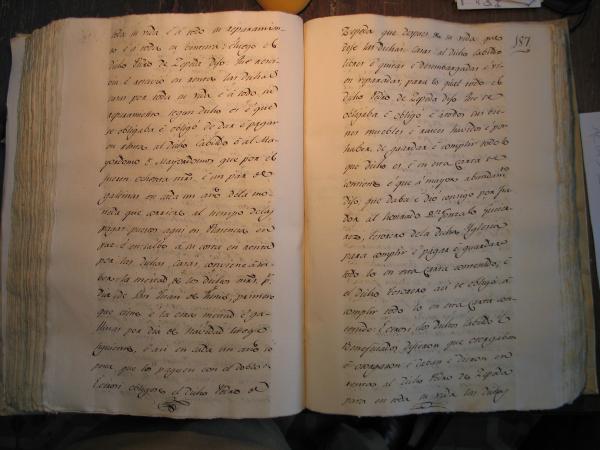 toda su vida é á todo su reparamien-
to é á toda su
dicho Pedro de Zepeda dijo
las dichas
casas por toda su vida é á todo su
reparamiento segun dicho es é que
se obligaba é obligó de dar é pagar
al dicho Cabildo ó al Ma-
yordomo ó Mayordomos que por él
fueren ochenta mrs. é un par de
gallinas en cada un año de la mo-
neda que corriere al tiempo de las
pagas puestos aquí en Plasencia en
paz é en salvo á su costa en renta
por las dichas casas conviene á sa-
ber: la meitad de los dichos mrs. p.r
dia de San Juan de Junio, primero
que viene é la otra meitad é ga-
llinas por dia de Navidad luego
siguiente, é así en cada un año so
pena que los paguen con el doblo é
obligose el dicho Pedro de
187
Zepeda que despues de su vida que
deje las dichas casas al dicho Cabildo
libres é quitas é desembargadas é bi-
en reparadas, para lo qual todo el
dicho Pedro de Zepeda dijo que se
obligaba é obligó é á todos sus bie-
nes muebles é raices havidos é por
haber de guardar é complir todo lo
que dicho es, é en esta carta se
contiene é que á mayor abundam.to
dijo, que daba é dio consigo por fia-
dor al honrado
tesorero de la dicha Yglesia
para complir é pagar é guardar
todo lo en esta carta contenido, é
el dicho tesorero así se obligó á
complir todo lo en esta carta con-
tenido: é los dichos Cabildo é
Beneficiados dijeron que otorgaban
é otorgaron é daban é dieron en
renta al dicho Pedro de Zepeda
para en toda su vida las dichas